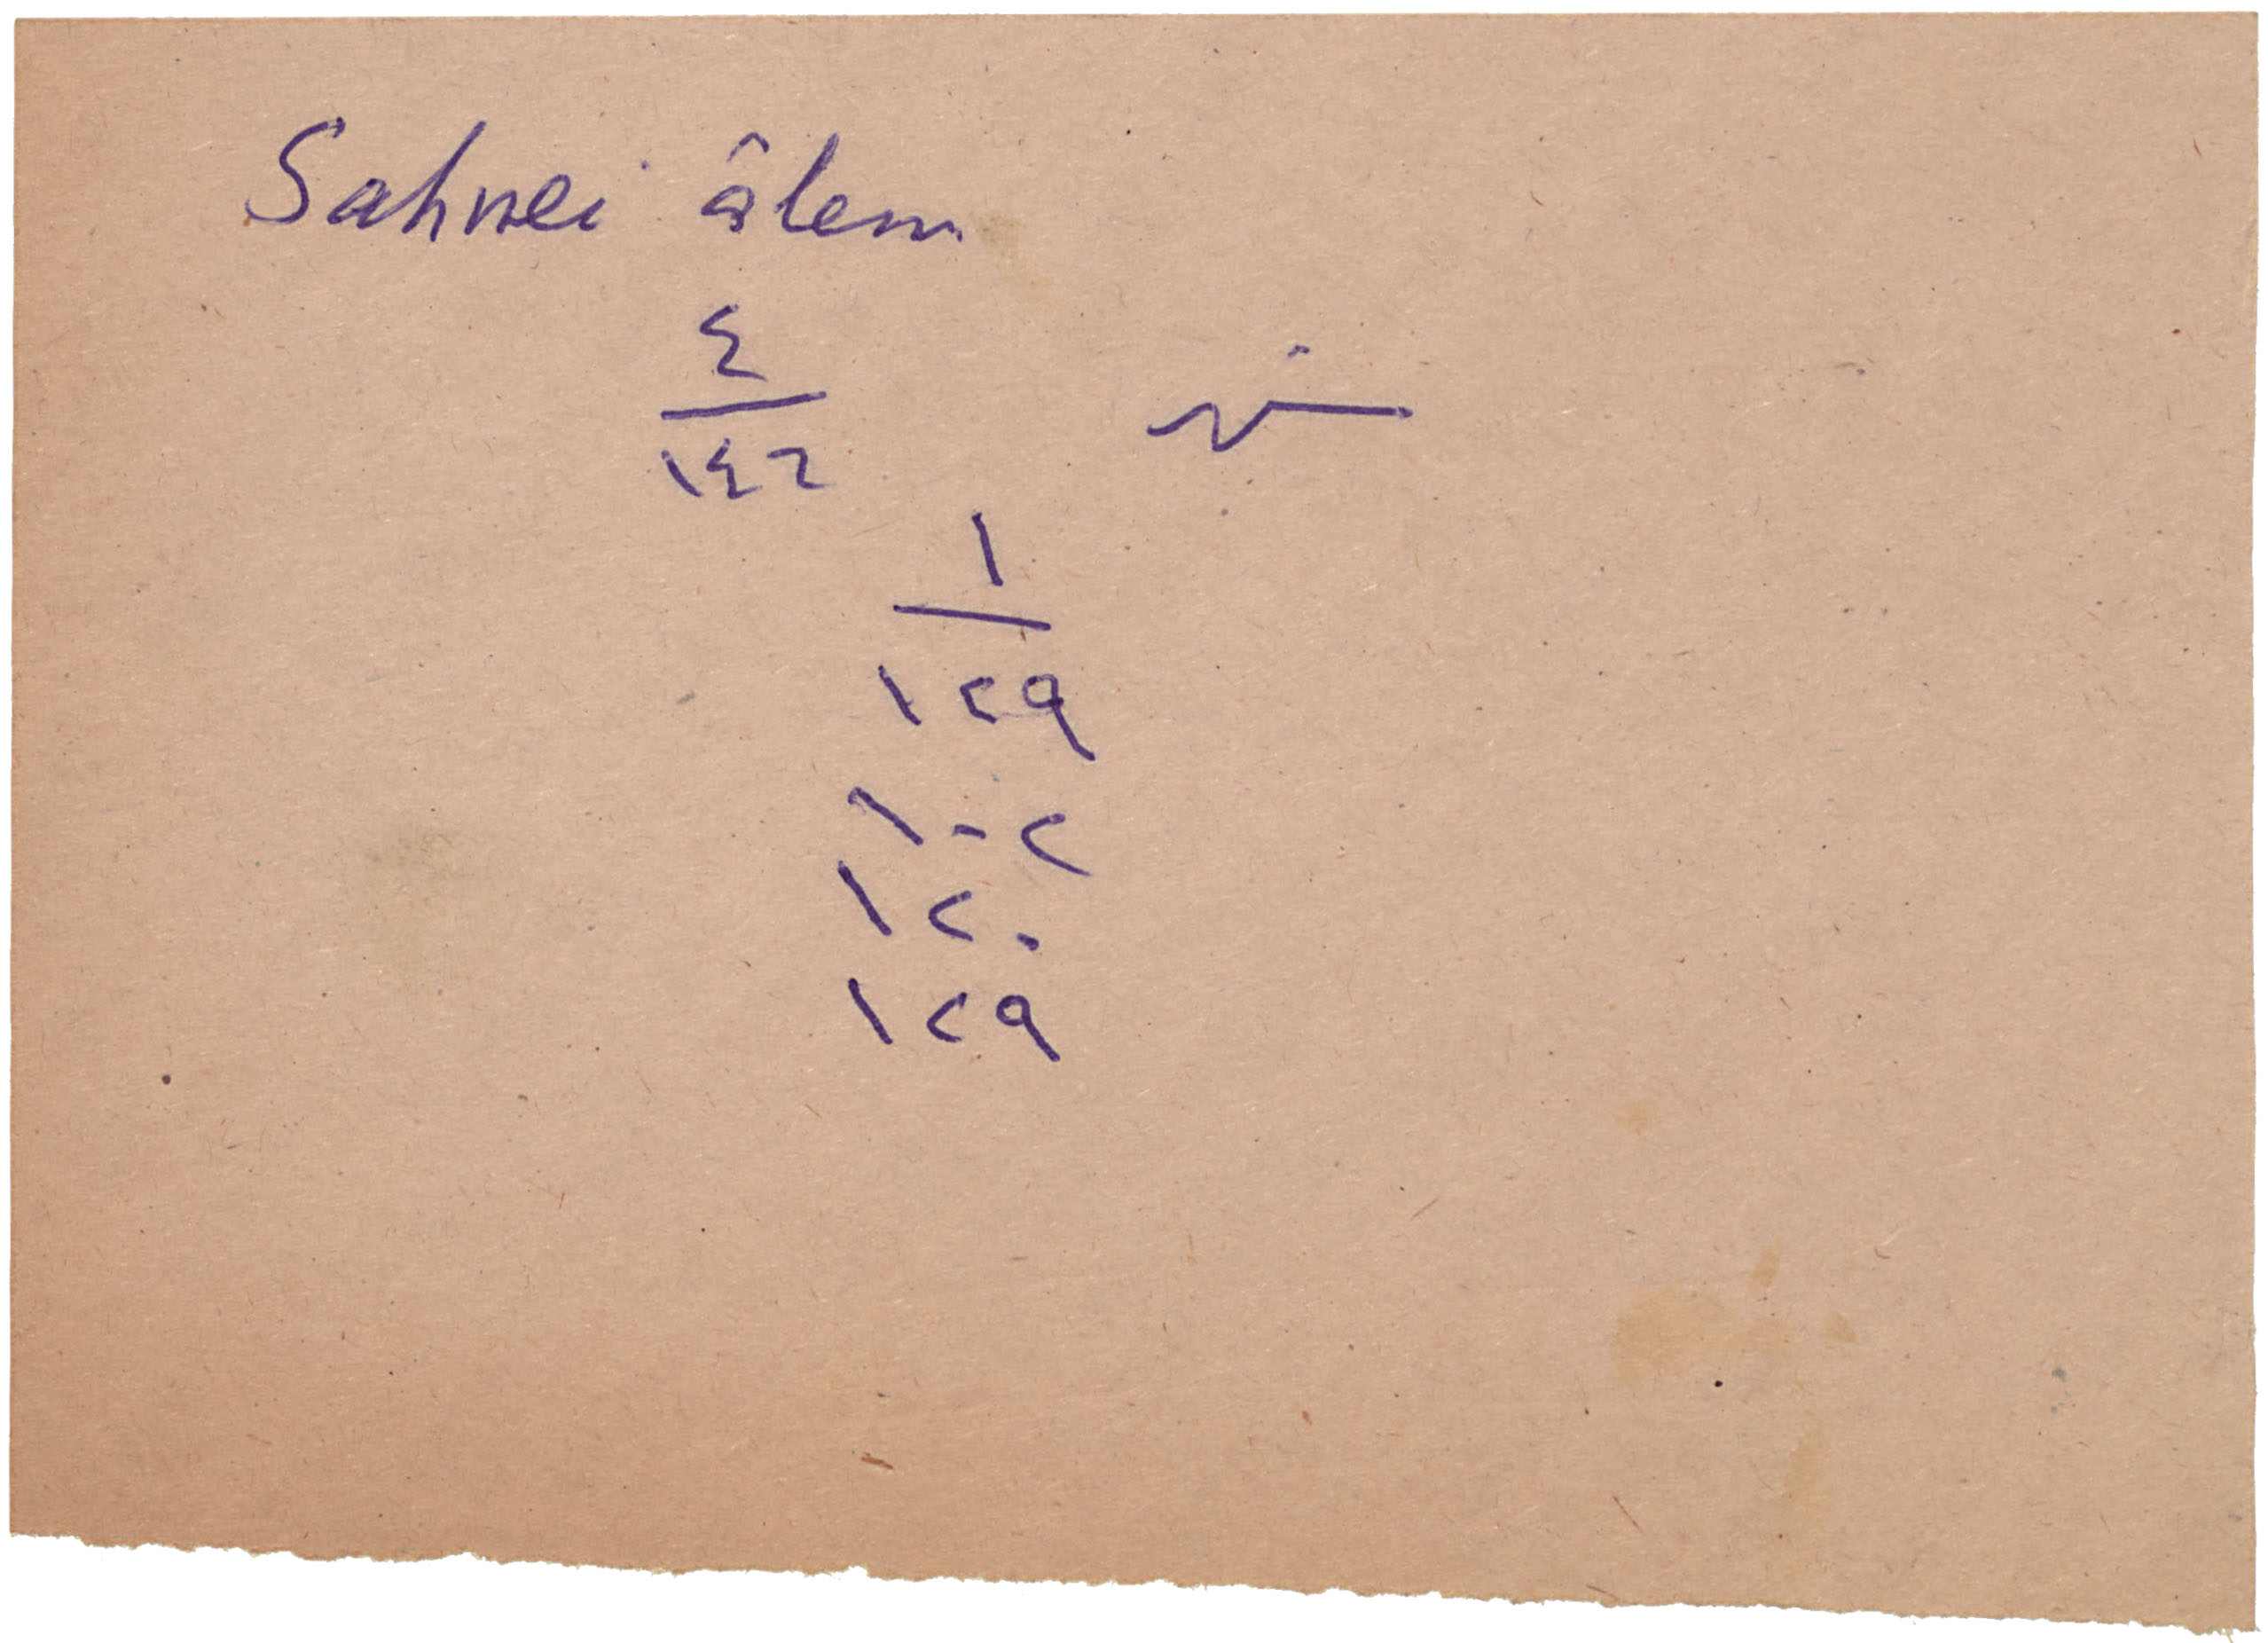 Sahnei âlem
٤
١٤٦
١
١٢٩
١٠٢
١٢٠
١٢٩